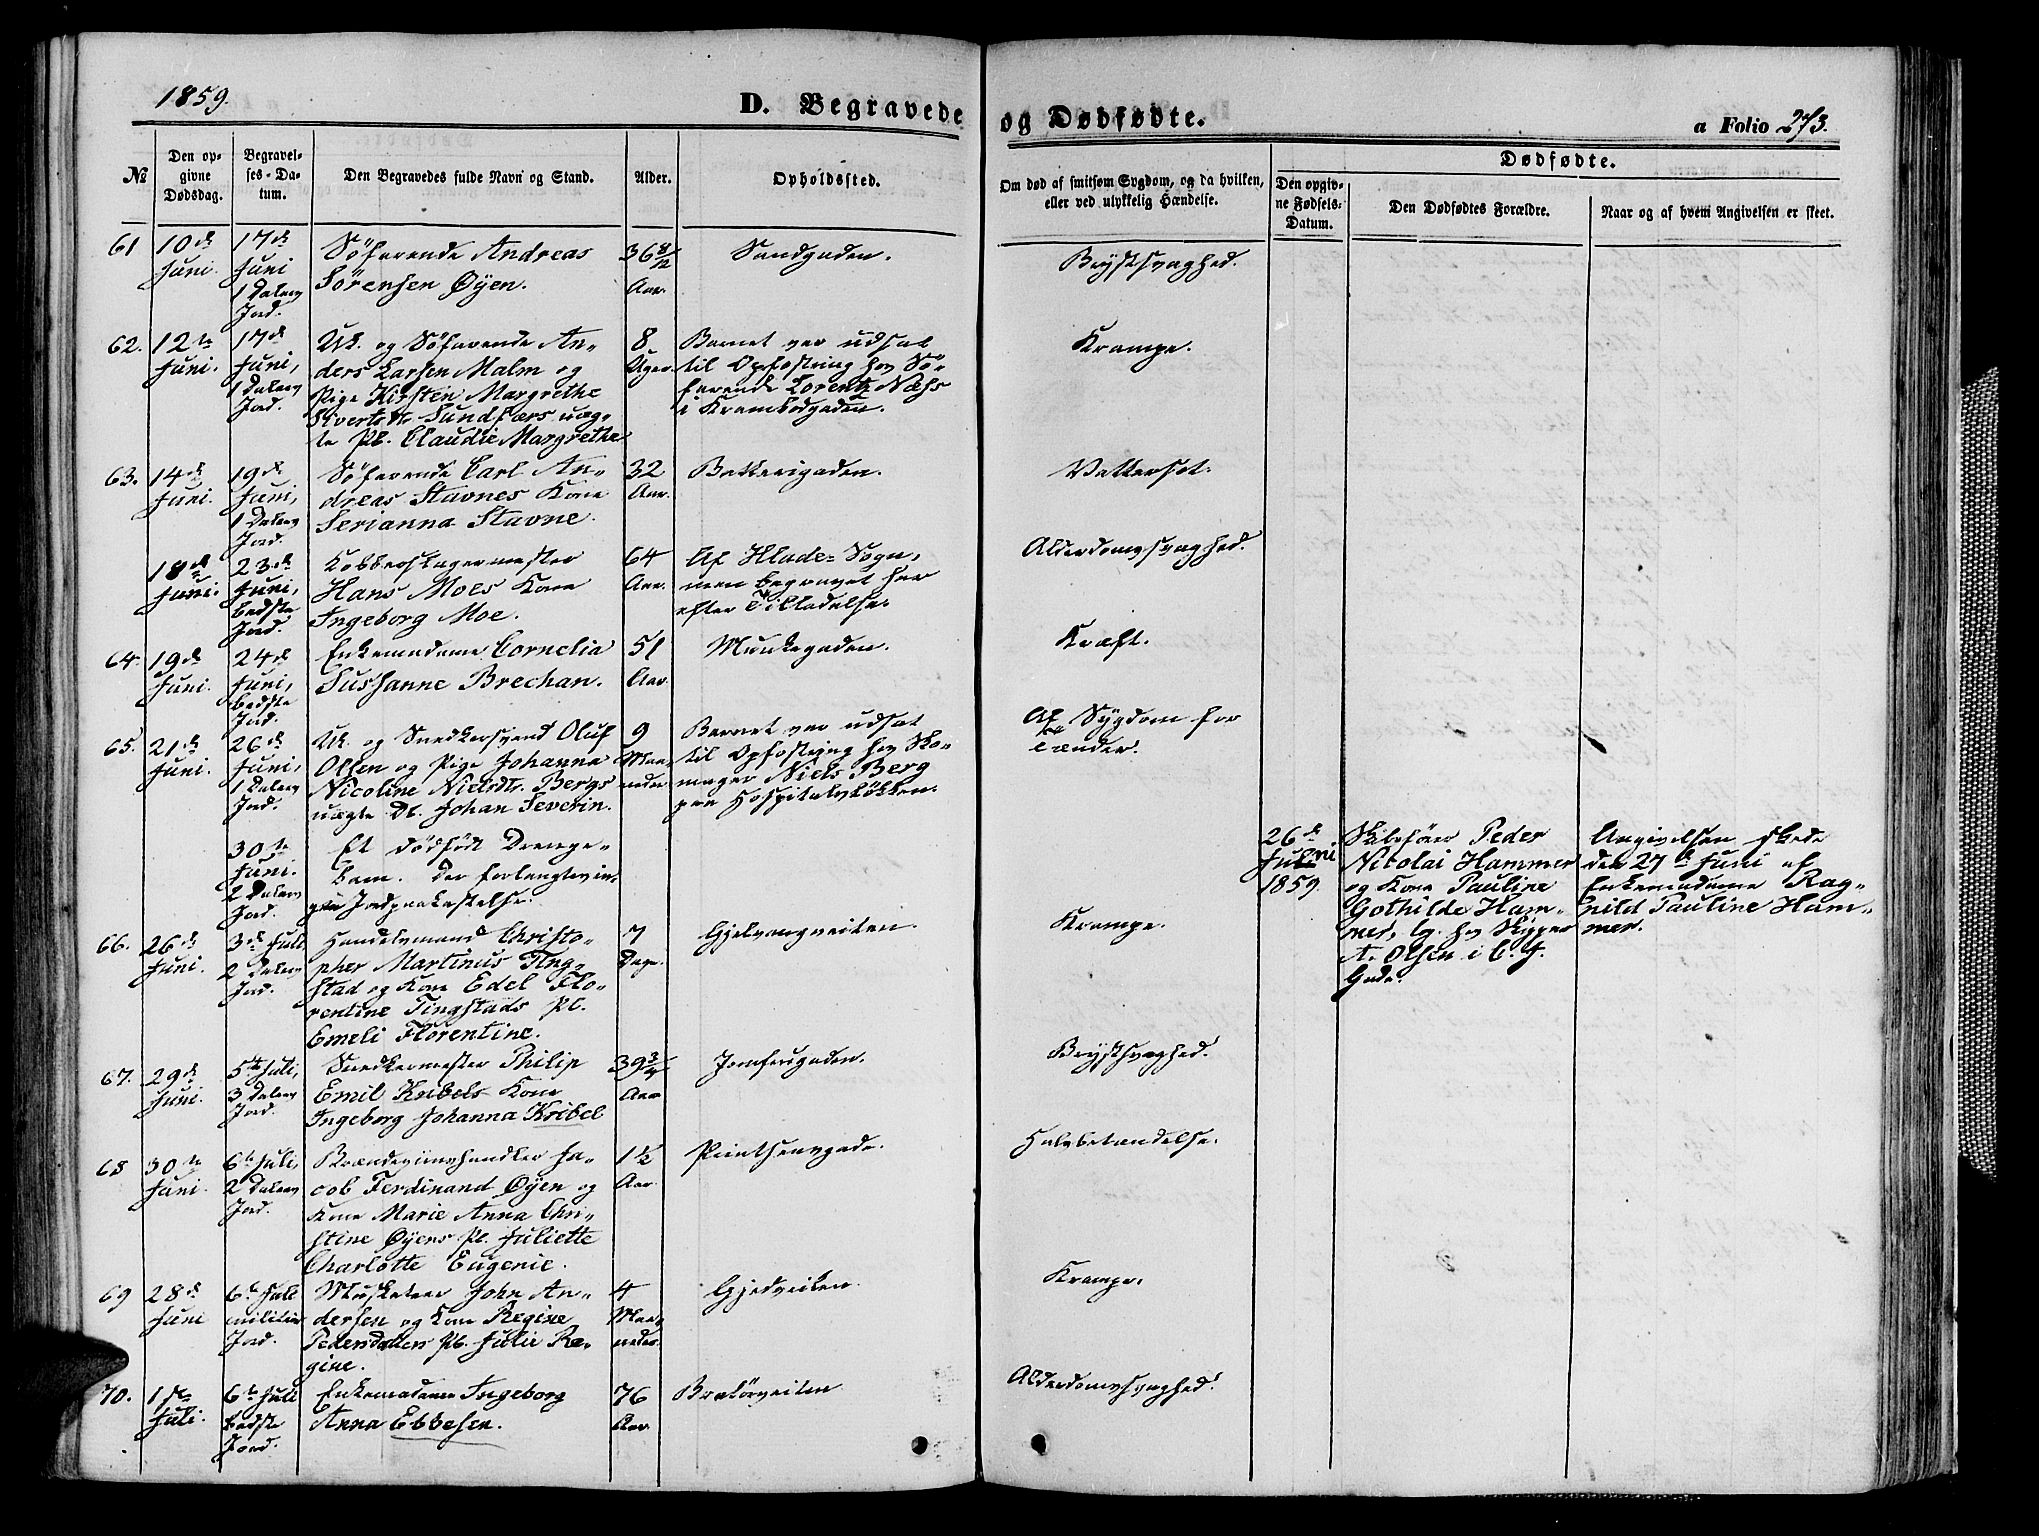 1859.
D. Begravede og Dødfødte.
a Folio 273.
№
Den opgivne Dødsdag.
Begravelses-Datum.
Den Begravedes fulde Navn og Stand.
Alder.
Opholdssted.
Om død af smitsom Sygdom, og da hvilken, eller ved ulykkelig Hændelse.
Dødfødte.
Den opgivne Fødsels-Datum.
Den Dødfødtes Forældre.
Naar og af hvem Angivelsen er skeet.
61 10de Juni. 17de Juni 1 Dalers Jord.
Søfarende Andreas
Sørensen Øyen.
36 8/12 Aar.
Sandgaden.
Brystsvaghed.
62. 12te Juni. 17de Juni, 1 Dalers Jord.
Uk. og Søfarende An-
ders Larsen Malm og
Pige Kirsten Margrethe
Sivertsdtr. Sundfærs uæg-
te Pb. Claudie Margrethe
8 Uger.
Barnet var udsat
til Opfostring hos Sø-
farende Lorentz Næss
i Krambodgaden.
Krampe.
63. 14de Juni. 19de Juni, 1 Dalers Jord.
Søfarende Carl An-
dreas Stavnes Kone
Serianna Stavne.
32 Aar.
Batterigaden.
Vattersot.
18de Juni. 23de Juni, bedste Jord.
Kobberslagermester
Hans Moes Kone
Ingeborg Moe.
64 Aar.
Af Hlade-Sogn,
men begravet her
efter Tilladelse.
Alderdomssvaghed.
64. 19de Juni. 24de Juni, bedste Jord.
Enkemadame Cornelia
Sussanne Brechan.
51 Aar
Munkegaden.
Kræft.
65. 21de Juni. 26de Juni, 1 Dalers Jord.
Uk. og Snedkersvend Oluf
Olsen og Pige Johanna
Nicoline Nielsdtr. Bergs
uægte Db. Johan Severin.
9 Maaneder
Barnet var udsat
til Opfostring hos Sko-
mager Niels Berg
paa Hospitalsløkken.
Af Sygdom for
Tænder.
30te Juni. 2 Dalers Jord.
Et dødfødt Drenge-
barn. Der forlangtes in-
gen Jordpaakastelse.
26de Juni 1859.
Skibsfører Peder
Nicolai Hammer
og Kone Pauline
Gothilde Ham-
mer, lg. hos Skipper
A. Olsen i C. J.
Gade.
Angivelsen skede
den 27de Juni af
Enkemadame Rag-
nild Pauline Ham-
mer.
66. 26de Juni. 3de Juli 2 Dalers Jord.
Handelsmand Christo-
pher Martinus Ting-
stad og Kone Edel Flo-
rentine Tingstads Pb.
Emeli Florentine.
7 Dage.
Gjelvangveiten.
Krampe.
67. 29de Juni. 5te Juli, 3 Dalers Jord.
Snedkermester Philip
Emil Kribels Kone
Ingeborg Johanna Kribel
39 3/4 Aar
Jomfrugaden.
Brystsvaghed.
68 30te Juni. 6te Juli, 2 Dalers Jord.
Brændeviinshandler Ja-
cob Ferdinand Øyen og
Kone Marie Anna Chri-
stine Øyens Pb. Juliette
Charlotte Eugenie.
1½ Aar
Printsensgade.
Halsbetændelse.
69 28de Juni 6te Juli militær Jord.
Musketeer John An-
dersen og Kone Regine
Pedersdatters Pb. Julie Re-
gine.
4 Maaneder.
Gjedveiten.
Krampe.
70. 1ste Juli. 6te Juli bedste Jord.
Enkemadame Ingeborg
Anna Ebbesen.
76 Aar
Bratørveiten
Alderdomssvaghed.